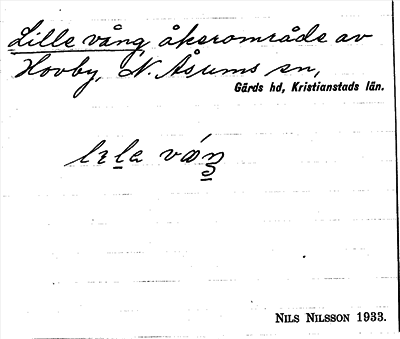 Lille vång, åkerområde av
Hovby, N. Åsums sn,
Gärds hd, Kristianstads län.
lɪla vά̊ŋ
NILS NILSSON 1933.